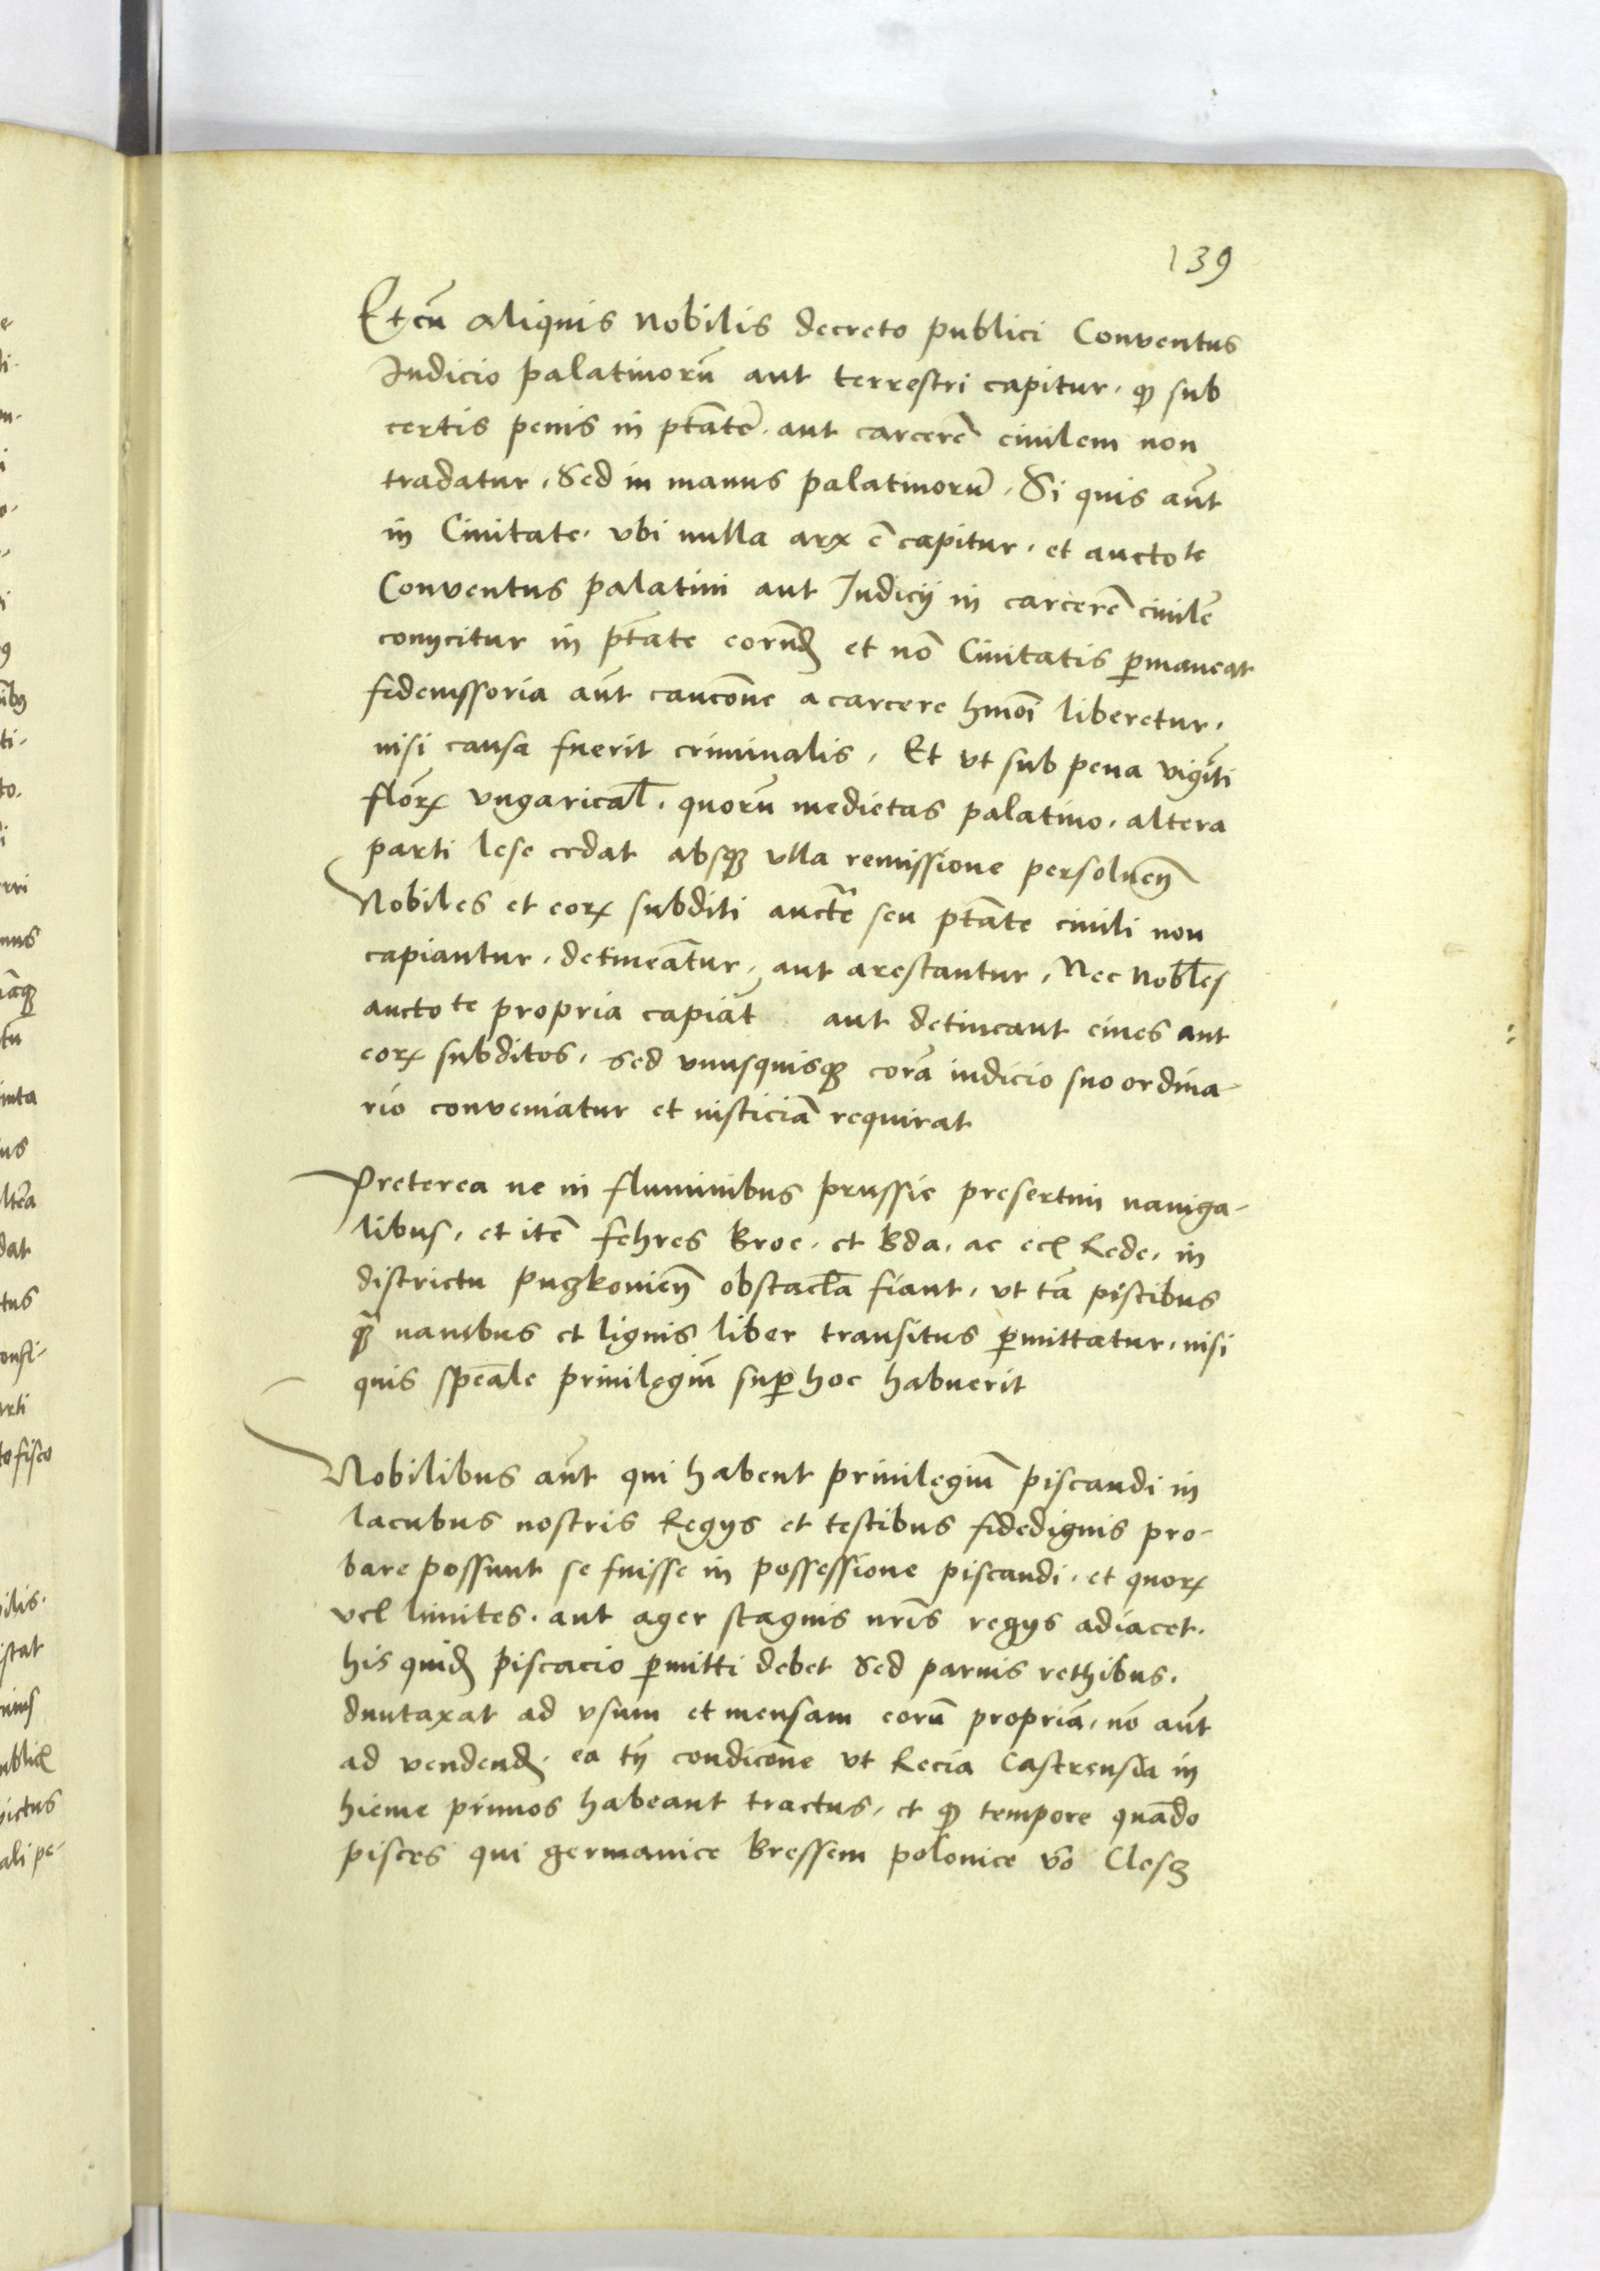 139
Et cū aliquis nobilis decreto publici Conventus
Iudicio palatinorū aut terrestri capitur. ꝙ sub
certis penis in ptāte. aut carcerē civilem non
tradatur. Sed in manus palatinorū. Si quis aūt
in Civitate. vbi nulla arx ē capitur. et auctote
Conventus palatini aut Judicij in carcerē civilē
conijcitur in ptāte eorūd et nō Civitatis ꝑmaneat
fideiussoria aūt caucōne a carcere hmōi liberetur.
nisi causa fuerit criminalis. Et vt sub pena viginti
florꝝ vngarical. quorū medietas palatino. altera
parti lese cedat absqꝫ vlla remissione persoluen̄
Nobiles et eorꝝ subditi aucte seu ptāte civili non
capiantur. detineātur. aut arestantur. Nec nobles
auctote propria capiāt aut detineant cives aut
eorꝝ subditos. sed vnusquisqꝫ corā iudicio suo ordina-
rio conveniatur et iusticiā requirat
Preterea ne in fluminibus prussie presertim naviga-
libus. et itē fehres Broc. et Bda. ac ecl Rede. in
districtu puzkonien̄ obstacla fiant. vt tā piscibus
qꝫ navibus et lignis liber transitus ꝑmittatur. nisi
quis speāle privilegiū suꝑ hoc habuerit
Nobilibus aūt qui habent privilegiū piscandi in
lacubus nostris Regijs et testibus fidedignis pro-
bare possunt se fuisse in possessione piscandi. et quorꝝ
vel limites. aut ager stagnis nris regijs adiacet.
his quid piscacio ꝑmitti debet Sed parvis rethibus.
duntaxat ad vsum et mensam eorū propriā. nō aūt
ad vendend. ea tn̄ condicōne vt Recia Castrensia in
hieme primos habeant tractus. et ꝙ tempore quādo
pisces qui germanice Bressem polonice vō Clesz